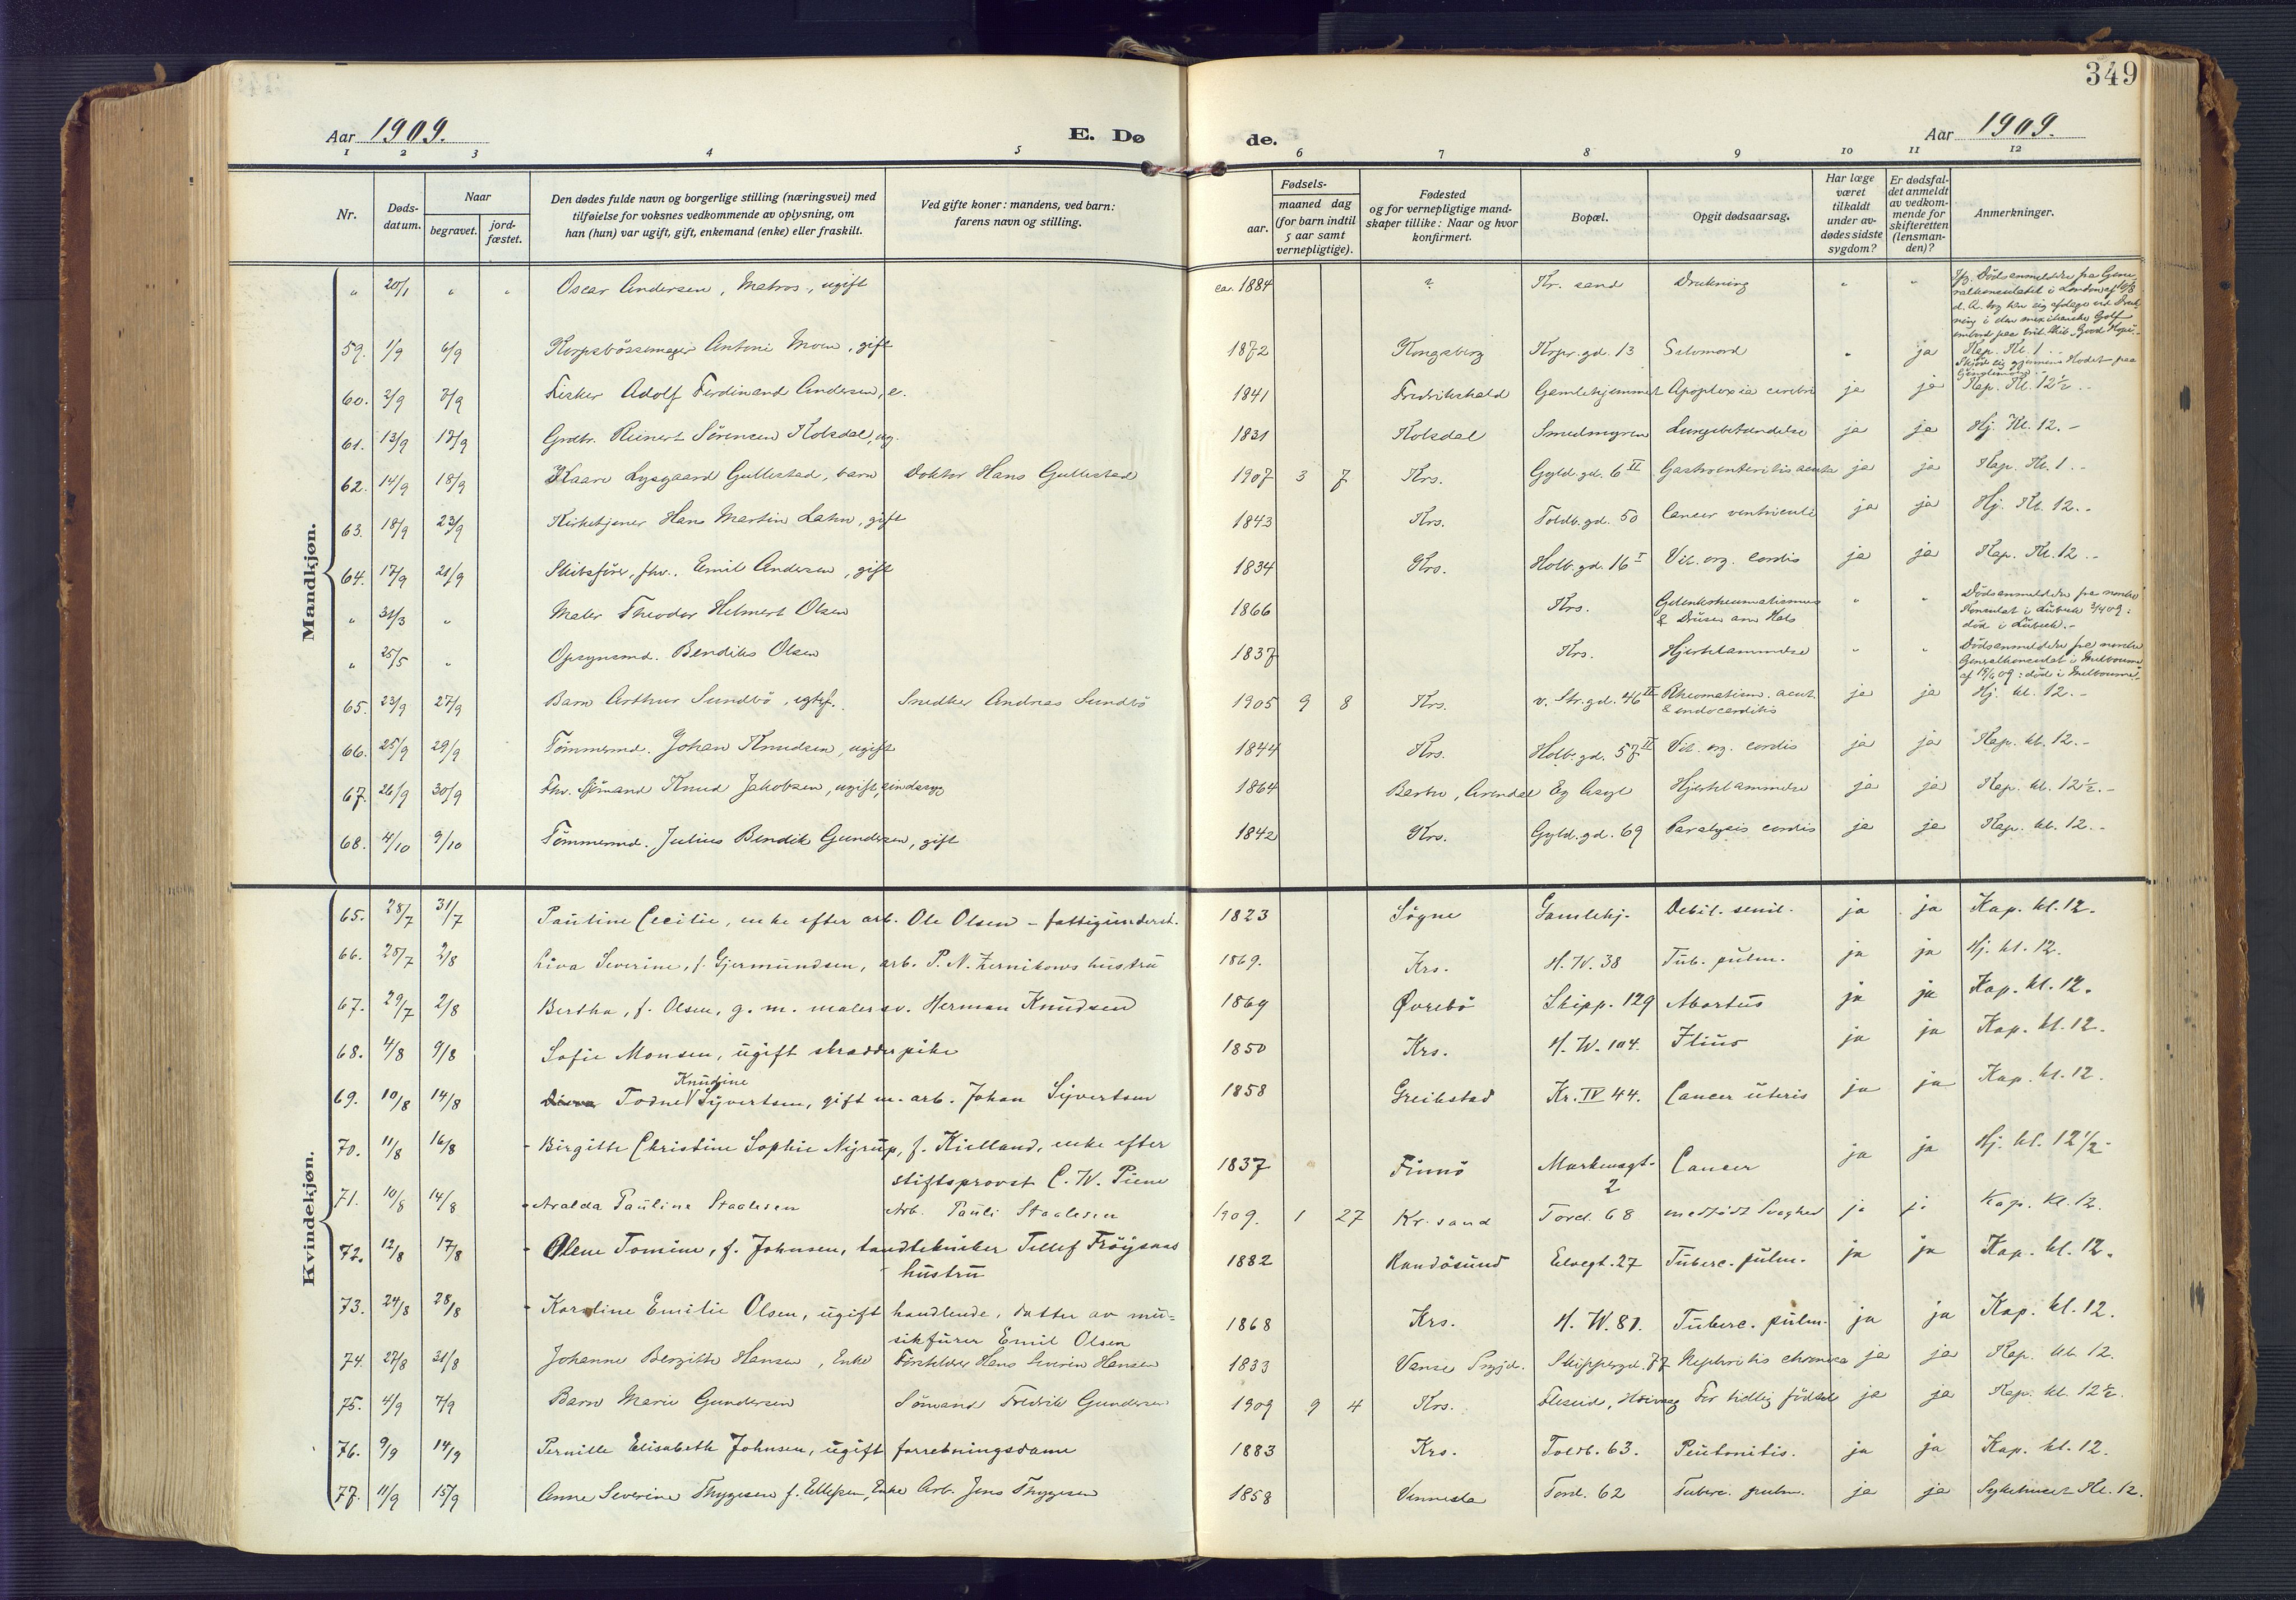 349
Aar 1909.
E. Dø de.
Aar 1909.
1 2 3 4 5 6 7 8 9 10 11 12
Nr.
Døds-datum.
Naar
begravet.
jord-fæstet.
Den dødes fulde navn og borgerlige stilling (næringsvei) med
tilføielse for voksnes vedkommende av oplysning, om
han (hun) var ugift, gift, enkemand (enke) eller fraskilt.
Ved gifte koner: mandens, ved barn:
farens navn og stilling.
Fødsels-
aar.
maaned dag
(for barn indtil
5 aar samt
vernepligtige).
Fødested
og for vernepligtige mand-
skaper tillike: Naar og hvor
konfirmert.
Bopæl.
Opgit dødsaarsag.
Har læge
været
tilkaldt
under av-
dødes sidste
sygdom?
Er dødsfal-
det anmeldt
av vedkom-
mende for
skifteretten
(lensman-
den)?
Anmerkninger.
Mandkjøn.
" 20/1 " " Oscar Andersen, Matros, ugift ca. 1884 ? Kr. sand Drukning " "
59. 1/9 6/9 Korpsbössemager Antoni Moen, gift 1872 Kongsberg Krpr. gd. 13 Selvmord " ja Kap. Kl. 1
60. 2/9 7/9 Fisker Adolf Ferdinand Andersen, e. 1841 Fredrikshald Gamlehjemmet Apoplexia cerebri ja ja Kap. Kl. 12 1/2 .-
61. 13/9 17/9 Grdbr. Reinert Sørensen Kolsdal, ug. 1831 Kolsdal Smedmyren Lungebetændelse ja ja Hj. Kl. 12. -
62. 14/9 18/9 Kaare Lysgaard Gullestad, barn Doktor Hans Gullestad 1907 3 7 Krs. Gyld. gd. 6 II Gastroenteritis acuta ja ja Kap. Kl. 1 .-
63. 18/9 23/9 Kirketjener Hans Martin Lahn, gift 1843 Krs. Toldb. gd. 50 Cancer ventriculi ja ja Hj. Kl. 12. -
64. 17/9 21/9 Skibsfører, fhv. Emil Andersen, gift 1834 Krs. Holb. gd. 16 I Vit. org. cordis ja ja Kap. Kl. 12 .-
" 31/3 " Maler Theodor Helmert Olsen 1866 Krs. Gelenkrheumatismus & Drüsen am Hals " " Dödsanmeldelse fra norske Konsulat i Lübeck 2/4 09: död i Lübeck. -
" 25/5 " Opsynsmd. Bendiks Olsen 1837 Krs. Hjertelammelse " " Dödsanmeldelse fra norske Generalkonsulat i Melbourne
65. 23/9 27/9 Barn Arthur Sundbö, egtef. Snedker Andreas Sundbö 1905 9 8 Krs. v. Str. gd. 46 II Rheumatism. acut. & endocarditis ja ja Hj. kl. 12. -
66. 25/9 29/9 Tømmermd. Johan Knudsen, ugift 1844 Krs. Holb. gd. 57 II Vit. org. cordis ja ja Kap. kl. 12. -
67. 26/9 30/9 Fhv. Sjømand Knud Jakobsen, ugift, sindssyg 1864 Barbu, Arendal Eg Asyl Hjertelammelse ja ja Kap. kl. 12 1/2. -
68. 4/10 9/10 Tømmermd. Julius Bendik Gundersen, gift 1842 Krs. Gyld. gd. 69 Paralysis cordis ja ja Kap. kl. 12. -
Kvindekjøn.
65. 28/7 31/7 Pauline Cecilie, enke efter arb. Ole Olsen - fattigunderst. 1823 Søgne Gamlehj. Debil. senil. ja ja Kap. kl. 12.
66. 28/7 2/8 Liva Severine, f. Gjermundsen, arb. P. N. Zernikows hustru 1869. Krs. H. W. 38 Tub. pulm. ja ja Hj. kl. 12.
67. 29/7 2/8 Bertha, f. Olsen, g. m. malersv. Herman Knudsen 1869 Øvrebö Skipp. 129 Abortus ja ja Kap. kl. 12.
68. 4/8 9/8 Sofie Monsen, ugift skrædderpike 1850 Krs. H. W. 104. Ilius ja ja Kap. kl. 12.
Knudine
69. 10/8 14/8 Todne Syvertsen, gift m. arb. Johan Syvertsen 1858 Greibstad Kr. IV 44. Cancer uteris ja ja Kap. kl. 12.
70. 11/8 16/8 Birgitte Christine Sophie Nyrup, f. Kielland, enke efter stiftsprovst C. W. Piene 1837 Finnö Markensgt. 2 Cancer ja ja Hj. kl. 12 1/2 -
71. 10/8 14/8 Aralda Pauline Staalesen Arb. Pauli Staalesen 1909. 1 27 Kr. sand Tord. 68 medfödt Svaghed ja ja Kap. kl. 12.
72. 12/8 17/8 Olene Tomine, f. Johnsen, tandtekniker Tellef Fröysaas hustru 1882 Randösund Elvegt. 27 Tuberc. pulm. ja ja Kap. kl. 12.
73. 24/8 28/8 Karoline Emilie Olsen, ugift handlende, datter av mu=sikfurer Emil Olsen 1868 Krs. H. W. 81. Tuberc. pulm. ja ja Kap. kl. 12.
74. 27/8 31/8 Johanne Bergitte Hansen, Enke Hans Severin Hansen 1833 Vanse Skippergd. 77 Nephritis chronica ja ja Kap. kl. 12.
75. 4/9 7/9 Barn Marie Gundersen Sømand Fredrik Gundersen 1909 9 4 Krs. Høivaag For tidlig fødsel ja ja Kap. kl. 12 1/2.
76. 9/9 14/9 Pernille Elisabeth Johnsen, ugift forretningsdame 1883 Krs. Toldb. 63. Peritonitis. ja ja Kap. kl. 12.
77. 11/9 15/9 Anne Severine Thygesen f. Ellefsen, Enke Arb. Jens Thygesen 1858 Vennesla Tord. 62 Tuberc. pulm. ja ja Sykehuset Kl. 12.